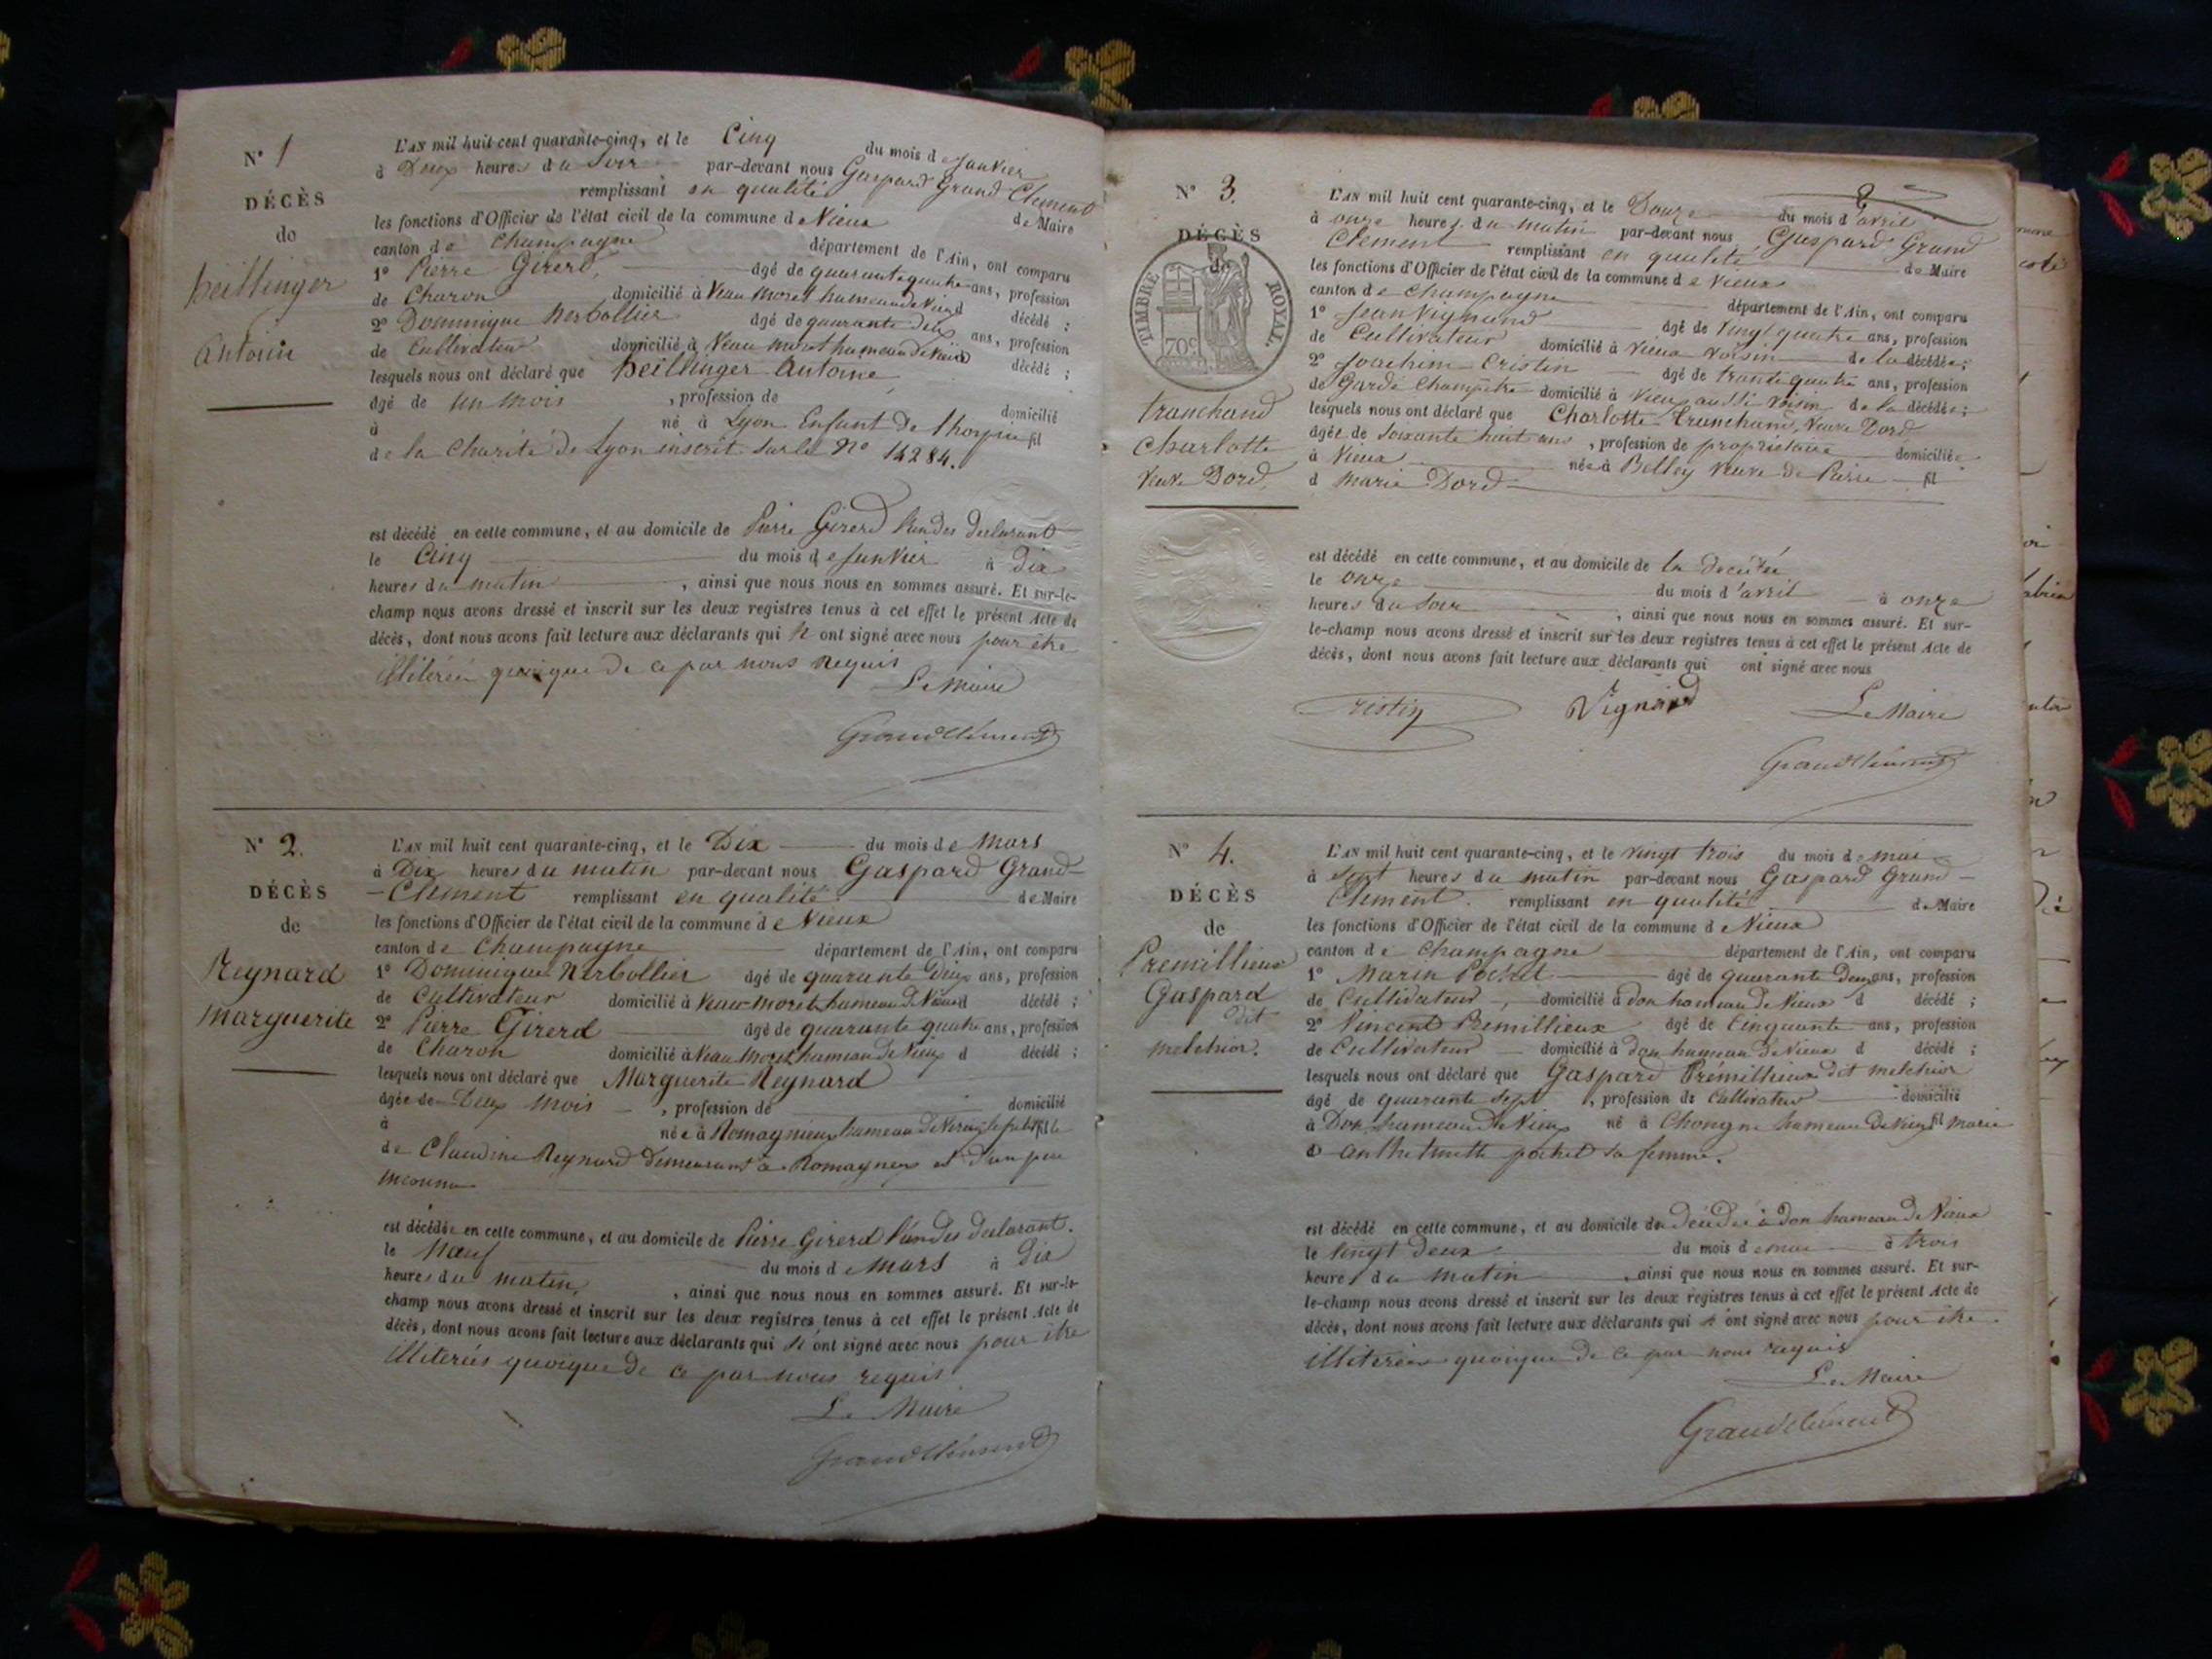 N° 1
DÉCÈS
de
Heitlinger
Antoine
L'AN mil huit cent quarante-cinq, et le Cinq du mois de Janvier
à Deux heures du Soir par-devant nous Gaspard Grand Clement
remplissant en qualité de Maire
les fonctions d'Officier de l'état civil de la commune de Vieux
canton de Champagne département de l'Ain, ont comparu
1° Pierre Girerd, âgé de quarante quatre ans, profession
de Charon domicilié à Vaux Moret hameau de Vieux d décédé ;
2° Dominique Nerbollier âgé de quarante deux ans, profession
de Cultivateur domicilié à Vaux Moret hameau de Vieux décédé ;
lesquels nous ont déclaré que Heitlinger Antoine
âgé de un mois , profession de domicilié
à né à Lyon Enfant de l'hospice fil
de la Charité de Lyon inscrit sur le N° 14284.
est décédé en cette commune, et au domicile de Pierre Girerd l'un des declarant
le Cinq du mois de Janvier à dix
heures du matin , ainsi que nous nous en sommes assuré. Et sur-le-
champ nous avons dressé et inscrit sur les deux registres tenus à cet effet le présent Acte de
décès, dont nous avons fait lecture aux déclarants qui n' ont signé avec nous pour être
illiterés quoique de ce par nous requis
Le Maire
Grandclément
N° 2.
DÉCÈS
de
Reynard
Marguerite
L'AN mil huit cent quarante-cinq, et le Dix du mois de Mars
à Dix heures du matin par-devant nous Gaspard Grand-
-Clement remplissant en qualité de Maire
les fonctions d'Officier de l'état civil de la commune de Vieux
canton de Champagne département de l'Ain, ont comparu
1° Dominique Nerbollier âgé de quarante Deux ans, profession
de Cultivateur domicilié à Vaux-Moret hameau de Vieux d décédé ;
2° Pierre Girerd âgé de quarante quatre ans, profession
de Charon domicilié à Vaux Moret hameau de Vieux d décédé ;
lesquels nous ont déclaré que Marguerite Reynard
âgée de Deux mois , profession de domicilié
à née à Romagnieux hameau de fille
de Claudine Reynard demeurant à Romagneux et d'un père
inconnu
est décédée en cette commune, et au domicile de Pierre Girerd l'un des declarant.
le Neuf du mois de Mars à Dix
heures du matin, , ainsi que nous nous en sommes assuré. Et sur-le-
champ nous avons dressé et inscrit sur les deux registres tenus à cet effet le présent Acte de
décès, dont nous avons fait lecture aux déclarants qui n' ont signé avec nous pour être
illiterés quoique de ce par nous requis
Le Maire
Grandclément
N° 3.
DÉCÈS
de
TIMBRE ROYAL.
70c
Tranchand
Charlotte
veuve Dord.
L'AN mil huit cent quarante-cinq, et le Douze du mois d'avril
à onze heures du matin par-devant nous Gaspard Grand
Clement remplissant en qualité de Maire
les fonctions d'Officier de l'état civil de la commune de Vieux
canton de Champagne département de l'Ain, ont comparu
1° Jean Vignand âgé de vingt quatre ans, profession
de Cultivateur domicilié à Vieux voisin de la décédée ;
2° Joachim Cristin âgé de trente quatre ans, profession
de Garde Champêtre domicilié à Vieux aussi voisin de la décédée ;
lesquels nous ont déclaré que Charlotte Tranchand, veuve Dord
âgée de soixante huit ans , profession de propriétaire domiciliée
à Vieux née à Belley veuve de Pierre fil
d Marie Dord
est décédé en cette commune, et au domicile de la decédée
le onze du mois d'avril à onze
heures du soir , ainsi que nous nous en sommes assuré. Et sur-
le-champ nous avons dressé et inscrit sur les deux registres tenus à cet effet le présent Acte de
décès, dont nous avons fait lecture aux déclarants qui ont signé avec nous
Cristin Vignand Le Maire
Grandclément
N° 4.
DÉCÈS
de
Premillieux
Gaspard
dit
melchior.
L'AN mil huit cent quarante-cinq, et le vingt trois du mois de mai
à sept heures du matin par-devant nous Gaspard Grand-
Clement. remplissant en qualité de Maire
les fonctions d'Officier de l'état civil de la commune de Vieux
canton de Champagne département de l'Ain, ont comparu
1° Marin Pochet âgé de quarante deux ans, profession
de Cultivateur , domicilié à don hameau de Vieux d décédé ;
2° Vincent Premillieux âgé de Cinquante ans, profession
de Cultivateur domicilié à don hameau de Vieux d décédé ;
lesquels nous ont déclaré que Gaspard Prémillieux dit melchior
âgé de quarante sept , profession de Cultivateur domicilié
à Don hameau de Vieux né à Chongne hameau de Vieux fil Marié
à Anthelmette pochet sa femme.
est décédé en cette commune, et au domicile du décédé à don hameau de Vieux
le vingt deux du mois de mai à trois
heures du matin , ainsi que nous nous en sommes assuré. Et sur-
le-champ nous avons dressé et inscrit sur les deux registres tenus à cet effet le présent Acte de
décès, dont nous avons fait lecture aux déclarants qui n' ont signé avec nous pour être
illiterés quoique de ce par nous requis
Le Maire
Grandclément